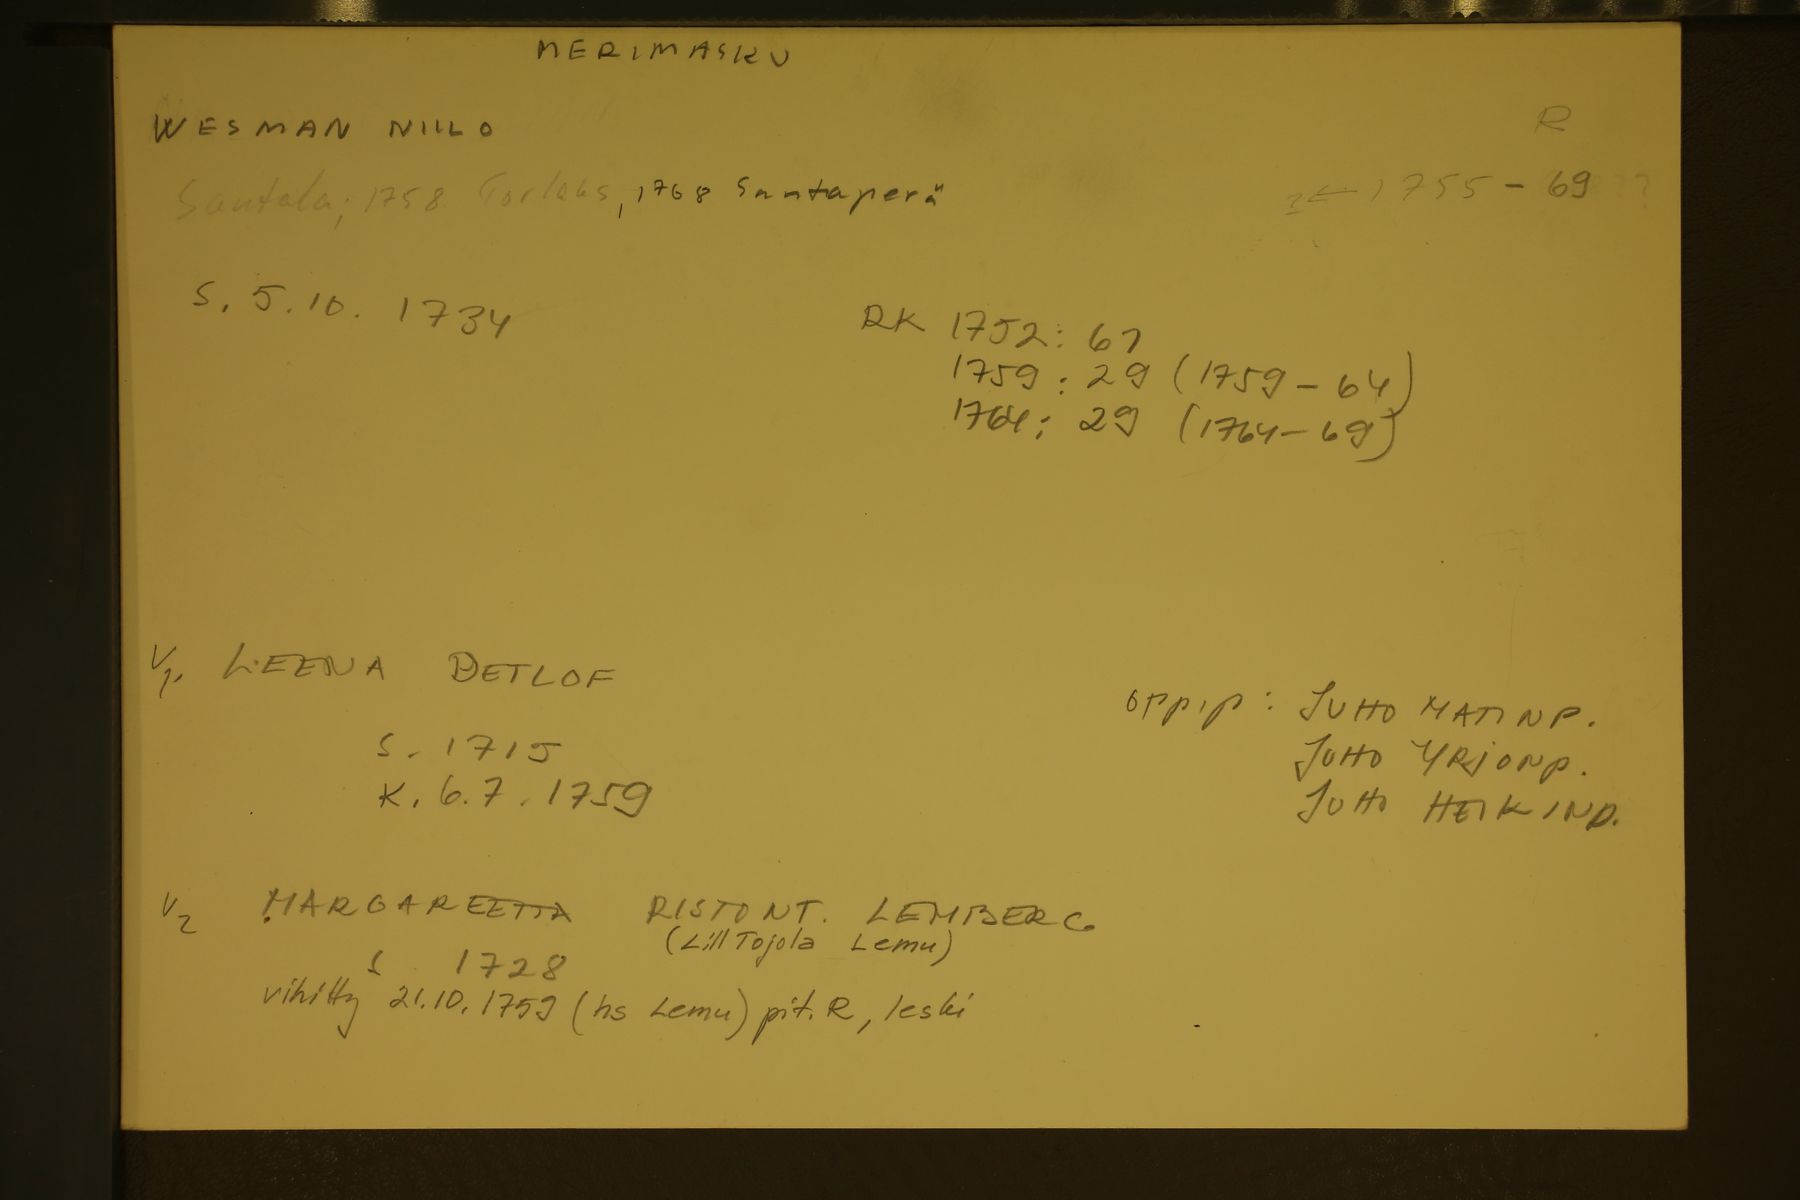 MERIMASKU
WESMAN NIILO
R
Santala; 1758 Torlahs, 1768 Santaperä
? ← 1755 - 69
S. 5.10. 1734
RK 1752: 67
1759: 29 (1759 - 64)
1764: 29 (1764 - 69)
V1. LEENA DETLOF
S. 1715
K. 6.7. 1759
oppip: JUHO MATINP.
JUHO YRJONP.
JUHO HEIKINP.
V2 MARGAREETTA RISTONT. LEMBERG
(LillTojola Lemu)
S 1728
vihitty 21.10.1759 (hs Lemu) pit. R, leski